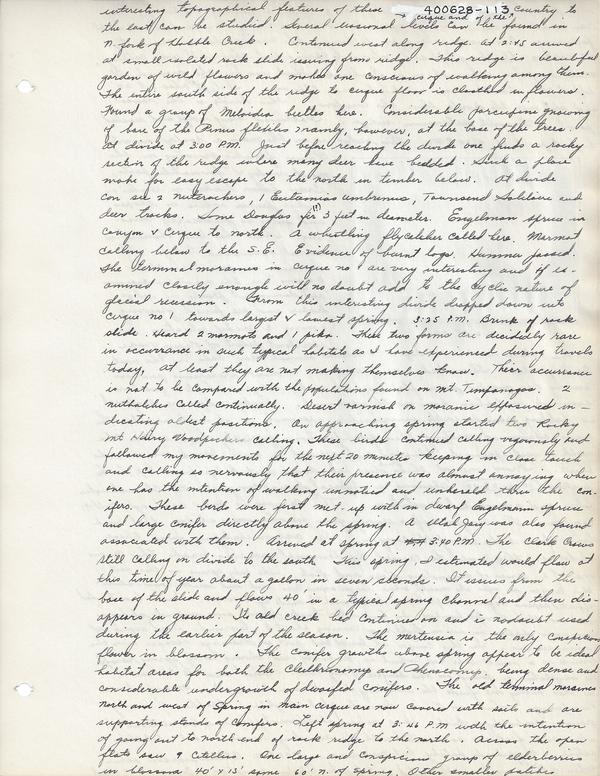 400628-113
interesting topographical features of these cirque and of the country to
the east can be studied. Several erosional levels can be found in
N. fork of Hobble Creek. Continued west along ridge. At 2:45 arrived
at small isolated rock slide issuing from ridge. This ridge is beautiful
garden of wild flowers and makes one conscious of walking among them.
The entire south side of the ridge to cirque floor is cloathed in flowers.
Found a group of Meloidea beetles here. Considerable porcupine gnawing
of bare of the Pinus flexilis mainly, however, at the base of the trees.
At divide at 3:00 P.M. Just before reaching the divide one finds a rocky
section of the ridge where many deer have bedded. Such a place
make for easy escape to the north in timber below. At divide
can see 2 nutcrackers, 1 Eutamias umbrinus, Townsend Solitaire and
deer tracks. Some Douglas fir (!!) 3 feet in diameter. Engelman spruce in
canyon & cirque to north. A whistling flycatcher called here. Marmot
calling below to the S.E. Evidence of burnt logs. Hummer passed.
The terminal moraines in cirque no 1 are very interesting and if ex-
amined closely enough will no doubt add to the cyclic nature of
glacial recession. From this interesting divide dropped down into
cirque no 1 towards largest & lowest spring. 3:25 P.M. Brink of rock
slide. Heard 2 marmots and 1 pika. These two forms are decidedly rare
in occurrance in such typical habitats as I have experienced during travels
today, at least they are not making themselves known. Their occurrance
is not to be compared with the populations found on Mt. Timpanogos. 2
nuthatches called continually. Desert varnish on morainic exposures in-
dicating oldest positions. On approaching spring started two Rocky
Mt Hairy Woodpeckers calling. These birds continued calling vigorously and
followed my movements for the next 20 minutes keeping in close touch
and calling so nervously that their presence was almost annoying when
one has the intention of walking unnoticed and unherald thru the con-
ifers. These birds were first met up with in dwarf Engelmann spruce
and large conifer directly above the spring. A Utah Jay was also found
associated with them. Arrived at spring at 3:40 P.M. The Clark Crows
still calling on divide to the south. This spring, I estimated would flow at
this time of year about a gallon in seven seconds. It issues from the
base of the slide and flows 40' in a typical spring channel and then dis-
appears in ground. Its old creek bed continues on and is nodoubt used
during the earlier part of the season. The mertusia is the only conspicuous
flower in blossom. The conifer growths above spring appear to be ideal
habitat areas for both the Clethrionomys and Phenacomys, being dense and
considerable undergrowth of dwarfed conifers. The old terminal moraines
north and west of spring in main cirque are now covered with soils and are
supporting stands of conifers. Left spring at 3:46 P.M with the intention
of going out to north end of rock ridge to the north. Across the open
flats saw 9 Citellus. One large and conspicuous group of elderberries
in blossom 40' x 15' some 60' N. of spring. Other smaller patches